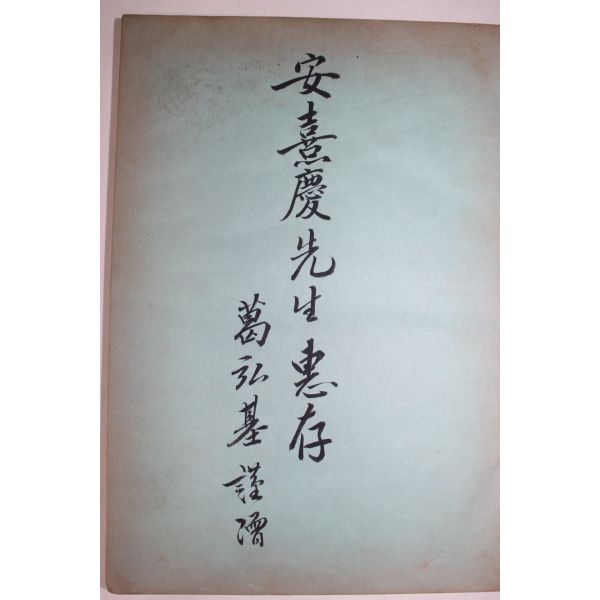 安熹慶先生惠存
葛弘基謹贈